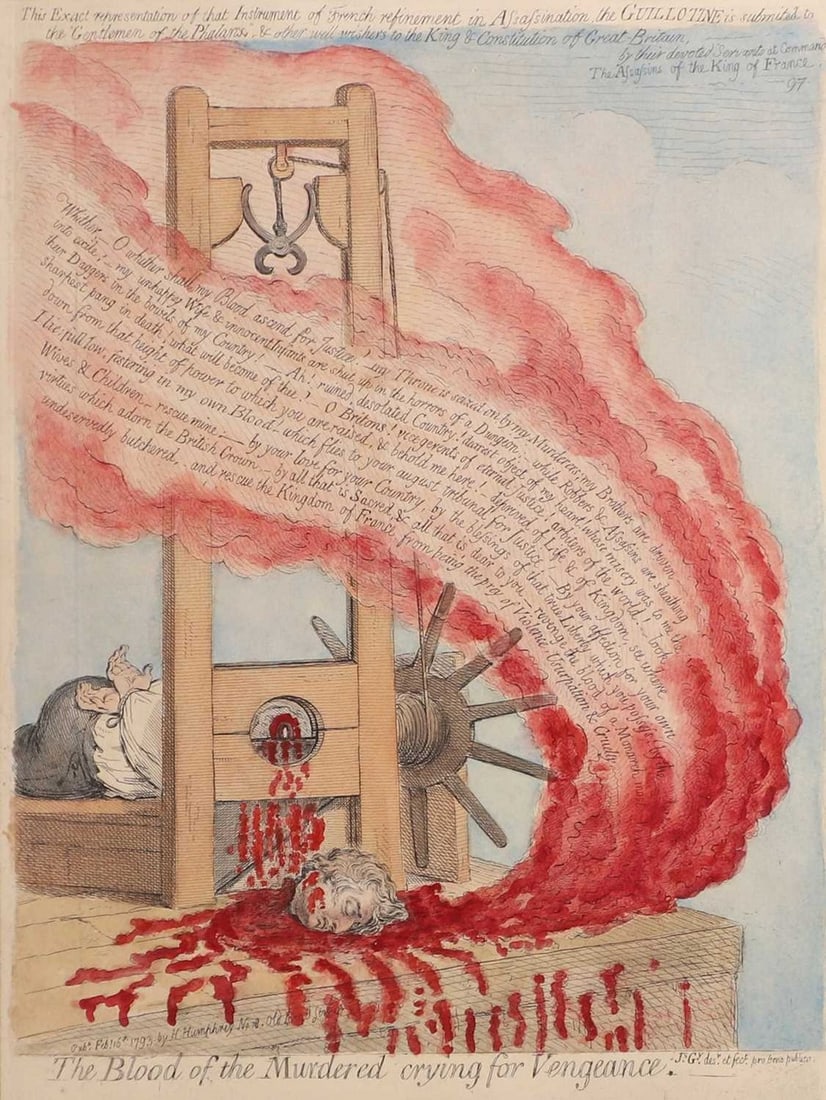 This Exact representation of that Instrument of French refinement in Aſsaſsination, the GUILLOTINE is submited to
the Gentlemen of the Phalanx, & other well wishers to the King & Constitution of Great Britain,
by their devoted Servants at Command
The Aſsaſsins of the King of France.
97
Whither, — O whither shall my Blood ascend for Justice! — my Throne is seized on by my Murderers; my Brothers are driven
into exile; — my unhappy Wife & innocent Infants are shut up in the horrors of a Dungeon; — while Robbers & Aſsaſsins are sheathing
their Daggers in the bowels of my Country! — Ah! ruined, desolated Country! dearest object of my heart! whose misery was to me the
sharpest pang in death! what will become of thee! — O Britons! vicegerents of eternal Justice! arbiters of the world! — look
down from that height of power to which you are raised, & behold me here! — deprived of Life & of Kingdom, see where
I lie; full low, festering in my own Blood! which flies to your august tribunal for Justice! — By your affection for your own
Wives & Children — rescue mine: — by your love for your Country, by the bleſsings of that true Liberty which you poſseſs by the
virtues which adorn the British Crown — by all that is Sacred, & all that is dear to you — revenge the blood of a Monarch most
undeservedly butchered, — and rescue the Kingdom of France, from being the prey of Violence, Usurpation & Cruelty.
Pubd. Feby. 16th. 1793. by H. Humphrey No. 18. Old Bond Street
The Blood of the Murdered crying for Vengeance.
Js. Gy. desn. et fect. pro bono publico.